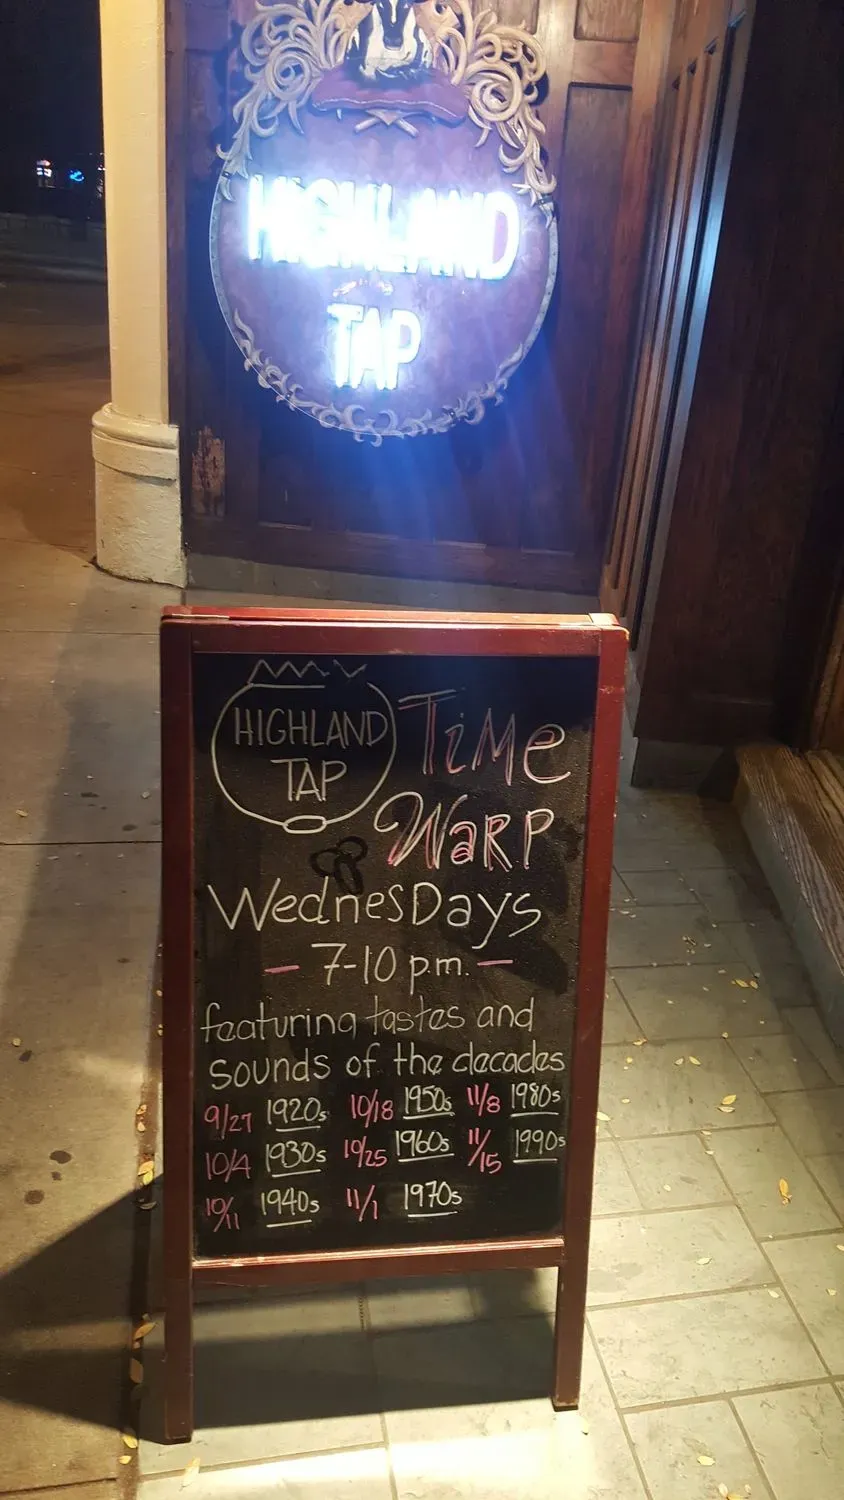 HIGHLAND
TAP
HIGHLAND
TAP
Time
Warp
WednesDays
- 7-10 p.m. -
featuring tastes and
sounds of the decades
9/27 1920s 10/18 1950s 11/8 1980s
10/4 1930s 10/25 1960s 11/15 1990s
10/11 1940s 11/1 1970s